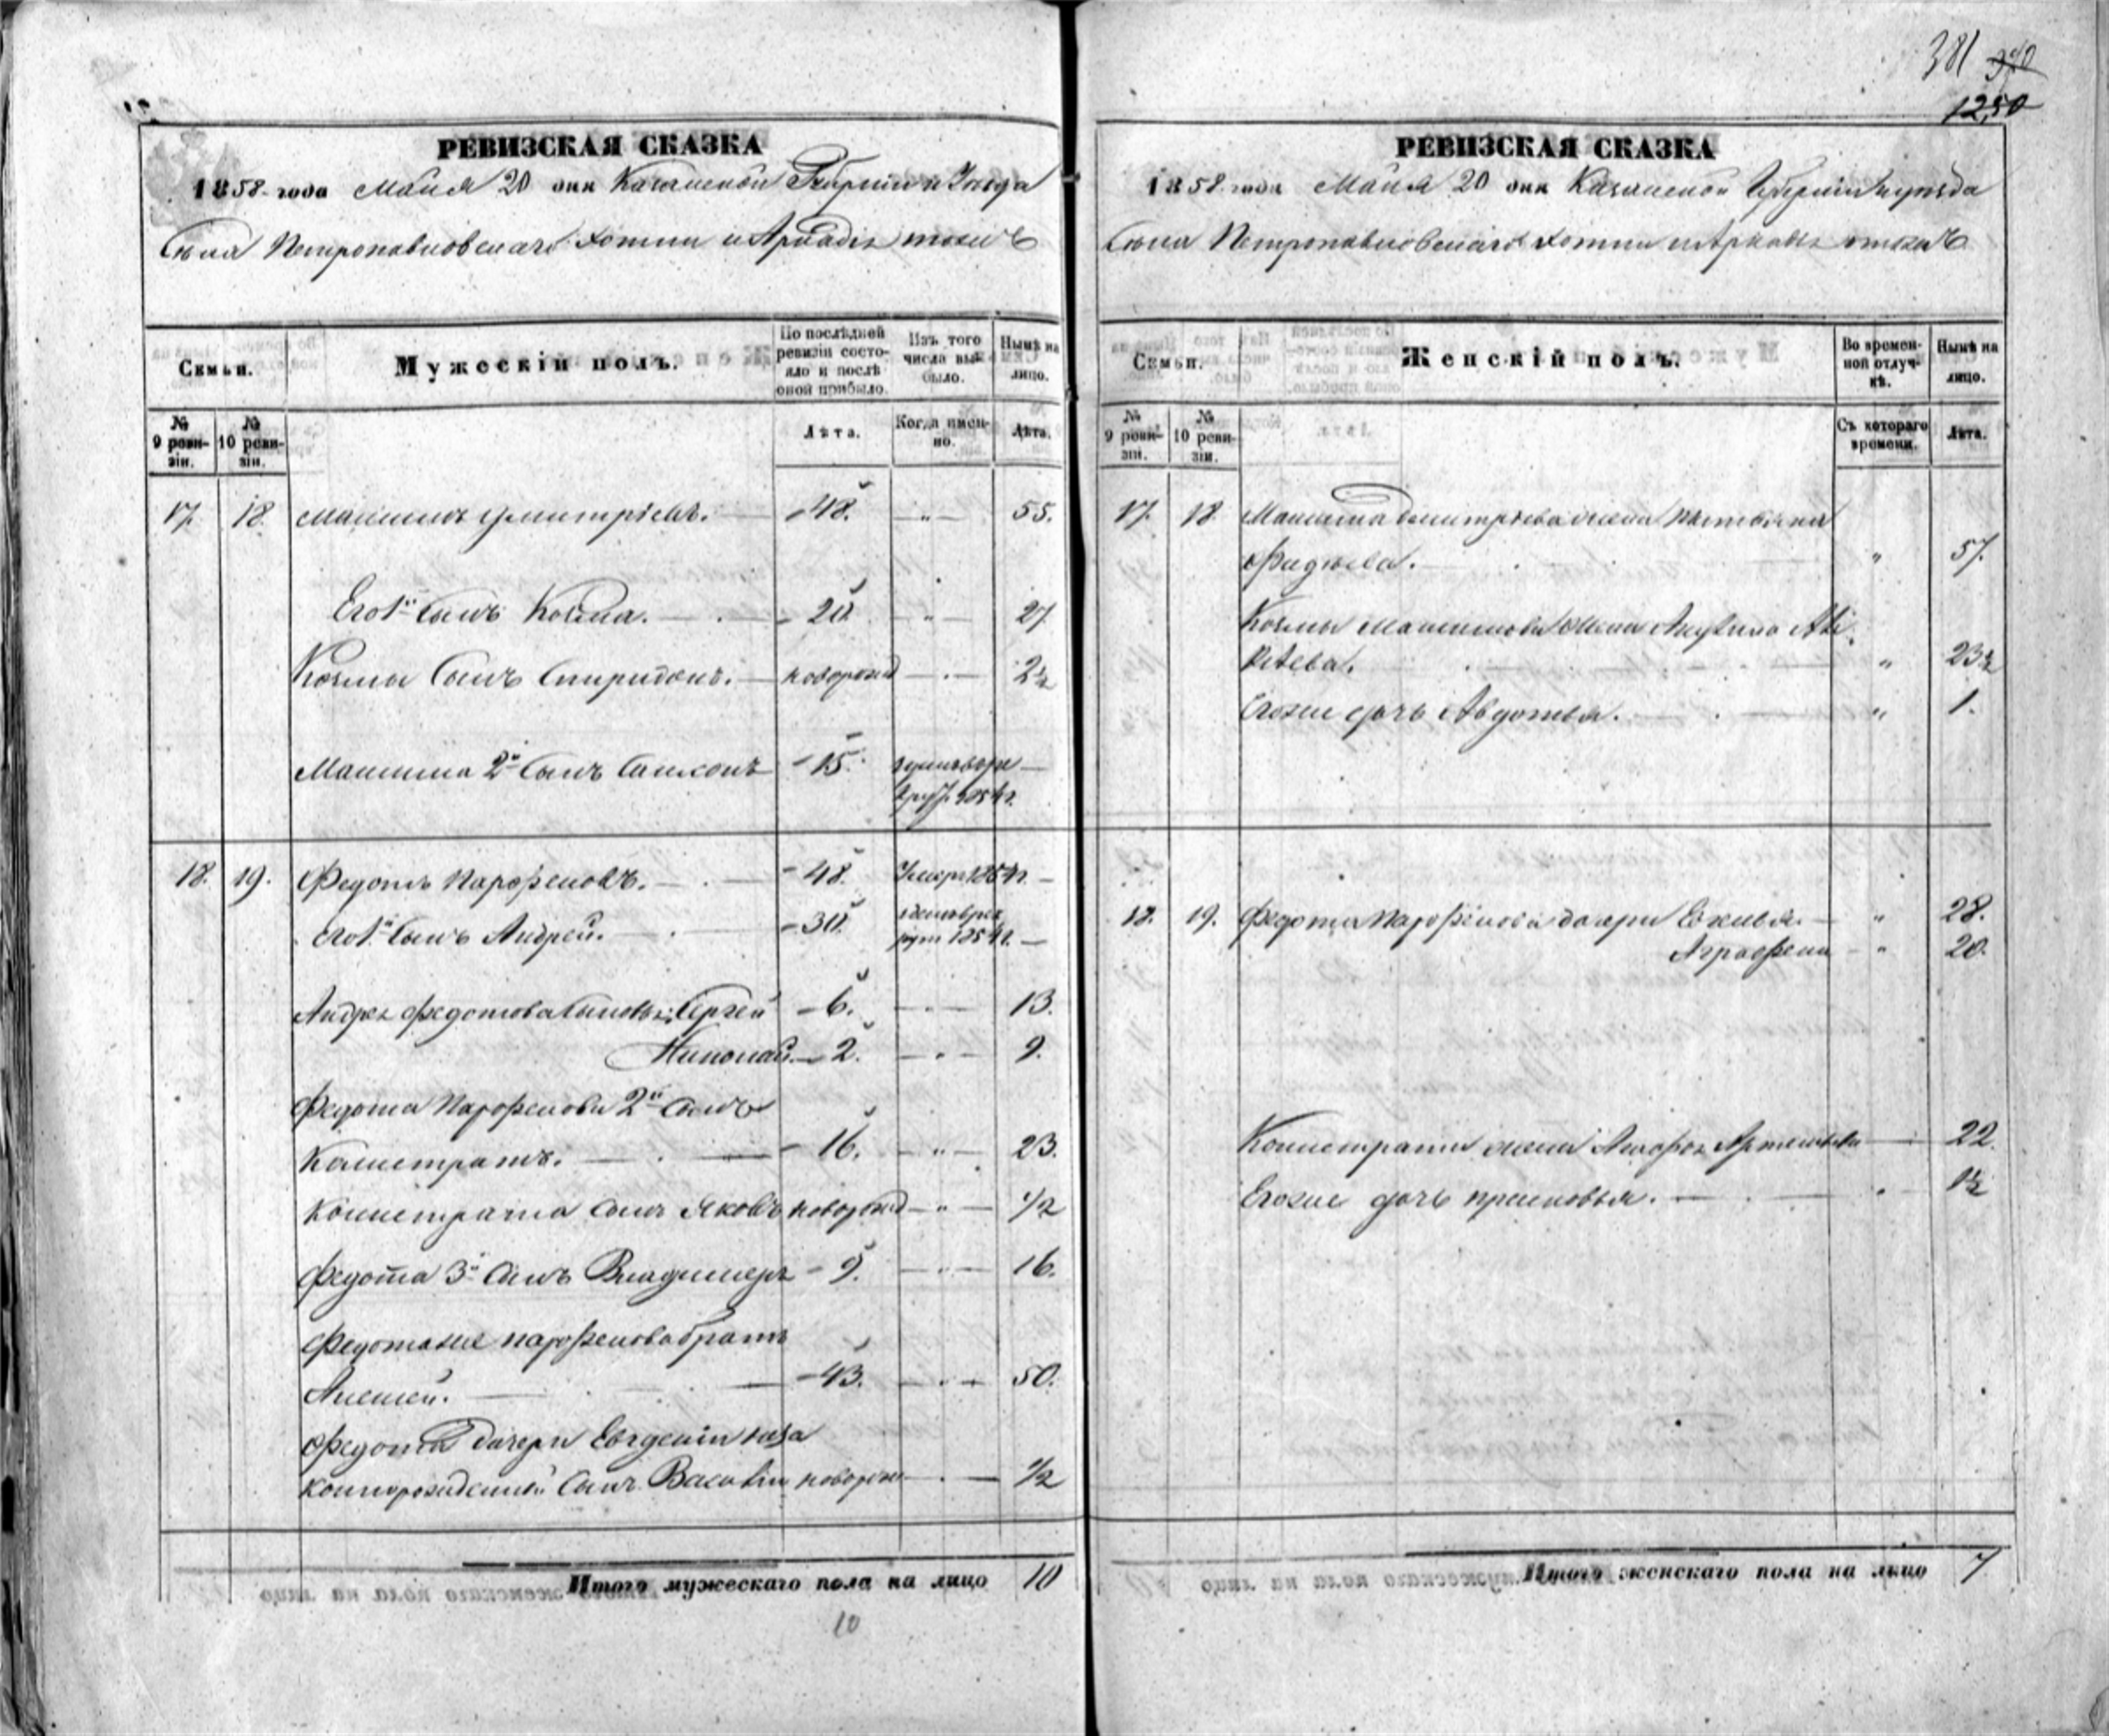 381 380
1250
РЕВИЗСКАЯ СКАЗКА
1858 года Маия 20 дня Казанской Губерніи и Уезда
Села Петропавловскаго Хотни и Аркадіи тожъ
По послѣдней ревизіи состояло и послѣ оной прибыло.
Изъ того числа выбыло.
Нынѣ на лицо.
Семьи.
Мужескій полъ.
№ 9 ревизіи.
№ 10 ревизіи.
Лѣта.
Когда именно.
Лѣта.
17. 18. Максимъ Дмитріевъ. 48. " 55.
Его 1й Сынъ Козма. 20. " 27
Козмы Сынъ Спиридонъ. новорожд 2½
Максима 2й Сынъ Самсонъ 15. 1854 г.
18. 19. Федотъ Парфеновъ. 48. Умеръ 1854 г.
Его 1й Сынъ Андрей. 30. 1854 г.
Андрея Федотова Сыновья: Сергей 6. 13.
Николай. 2. 9.
Федота Парфенова 2й Сынъ
Калистратъ. 16. " 23.
Калистрата Сынъ Яковъ новорожд " 1/2
Федота 3й Сынъ Владимеръ 9. 16.
Федота же Парфенова братъ
Алексей. 43. 50.
Федота дочери Евгеніи
незаконнорожденный Сынъ Василій новорож 1/2
Итого мужескаго пола на лицо 10
10
РЕВИЗСКАЯ СКАЗКА
1858 года Маия 20 дня Казанской Губерніи и уезда
Села Петропавловскаго Хотни и Аркадіи тожъ
Семьи.
Женскій полъ.
Во временной отлучкѣ.
Нынѣ на лицо.
№ 9 ревизіи.
№ 10 ревизіи.
Съ котораго времени.
Лѣта.
17. 18. Максима Дмитріева жена
Фадеева. " 57.
Козмы Максимова жена Акулина
" 23½
Егоже дочь Авдотья. " 1.
18. 19. Федота Парфенова дочери " 28.
Аграфена " 20.
Калистрата жена 22.
Егоже дочь Прасковья. 1½
Итого женскаго пола на лицо 7